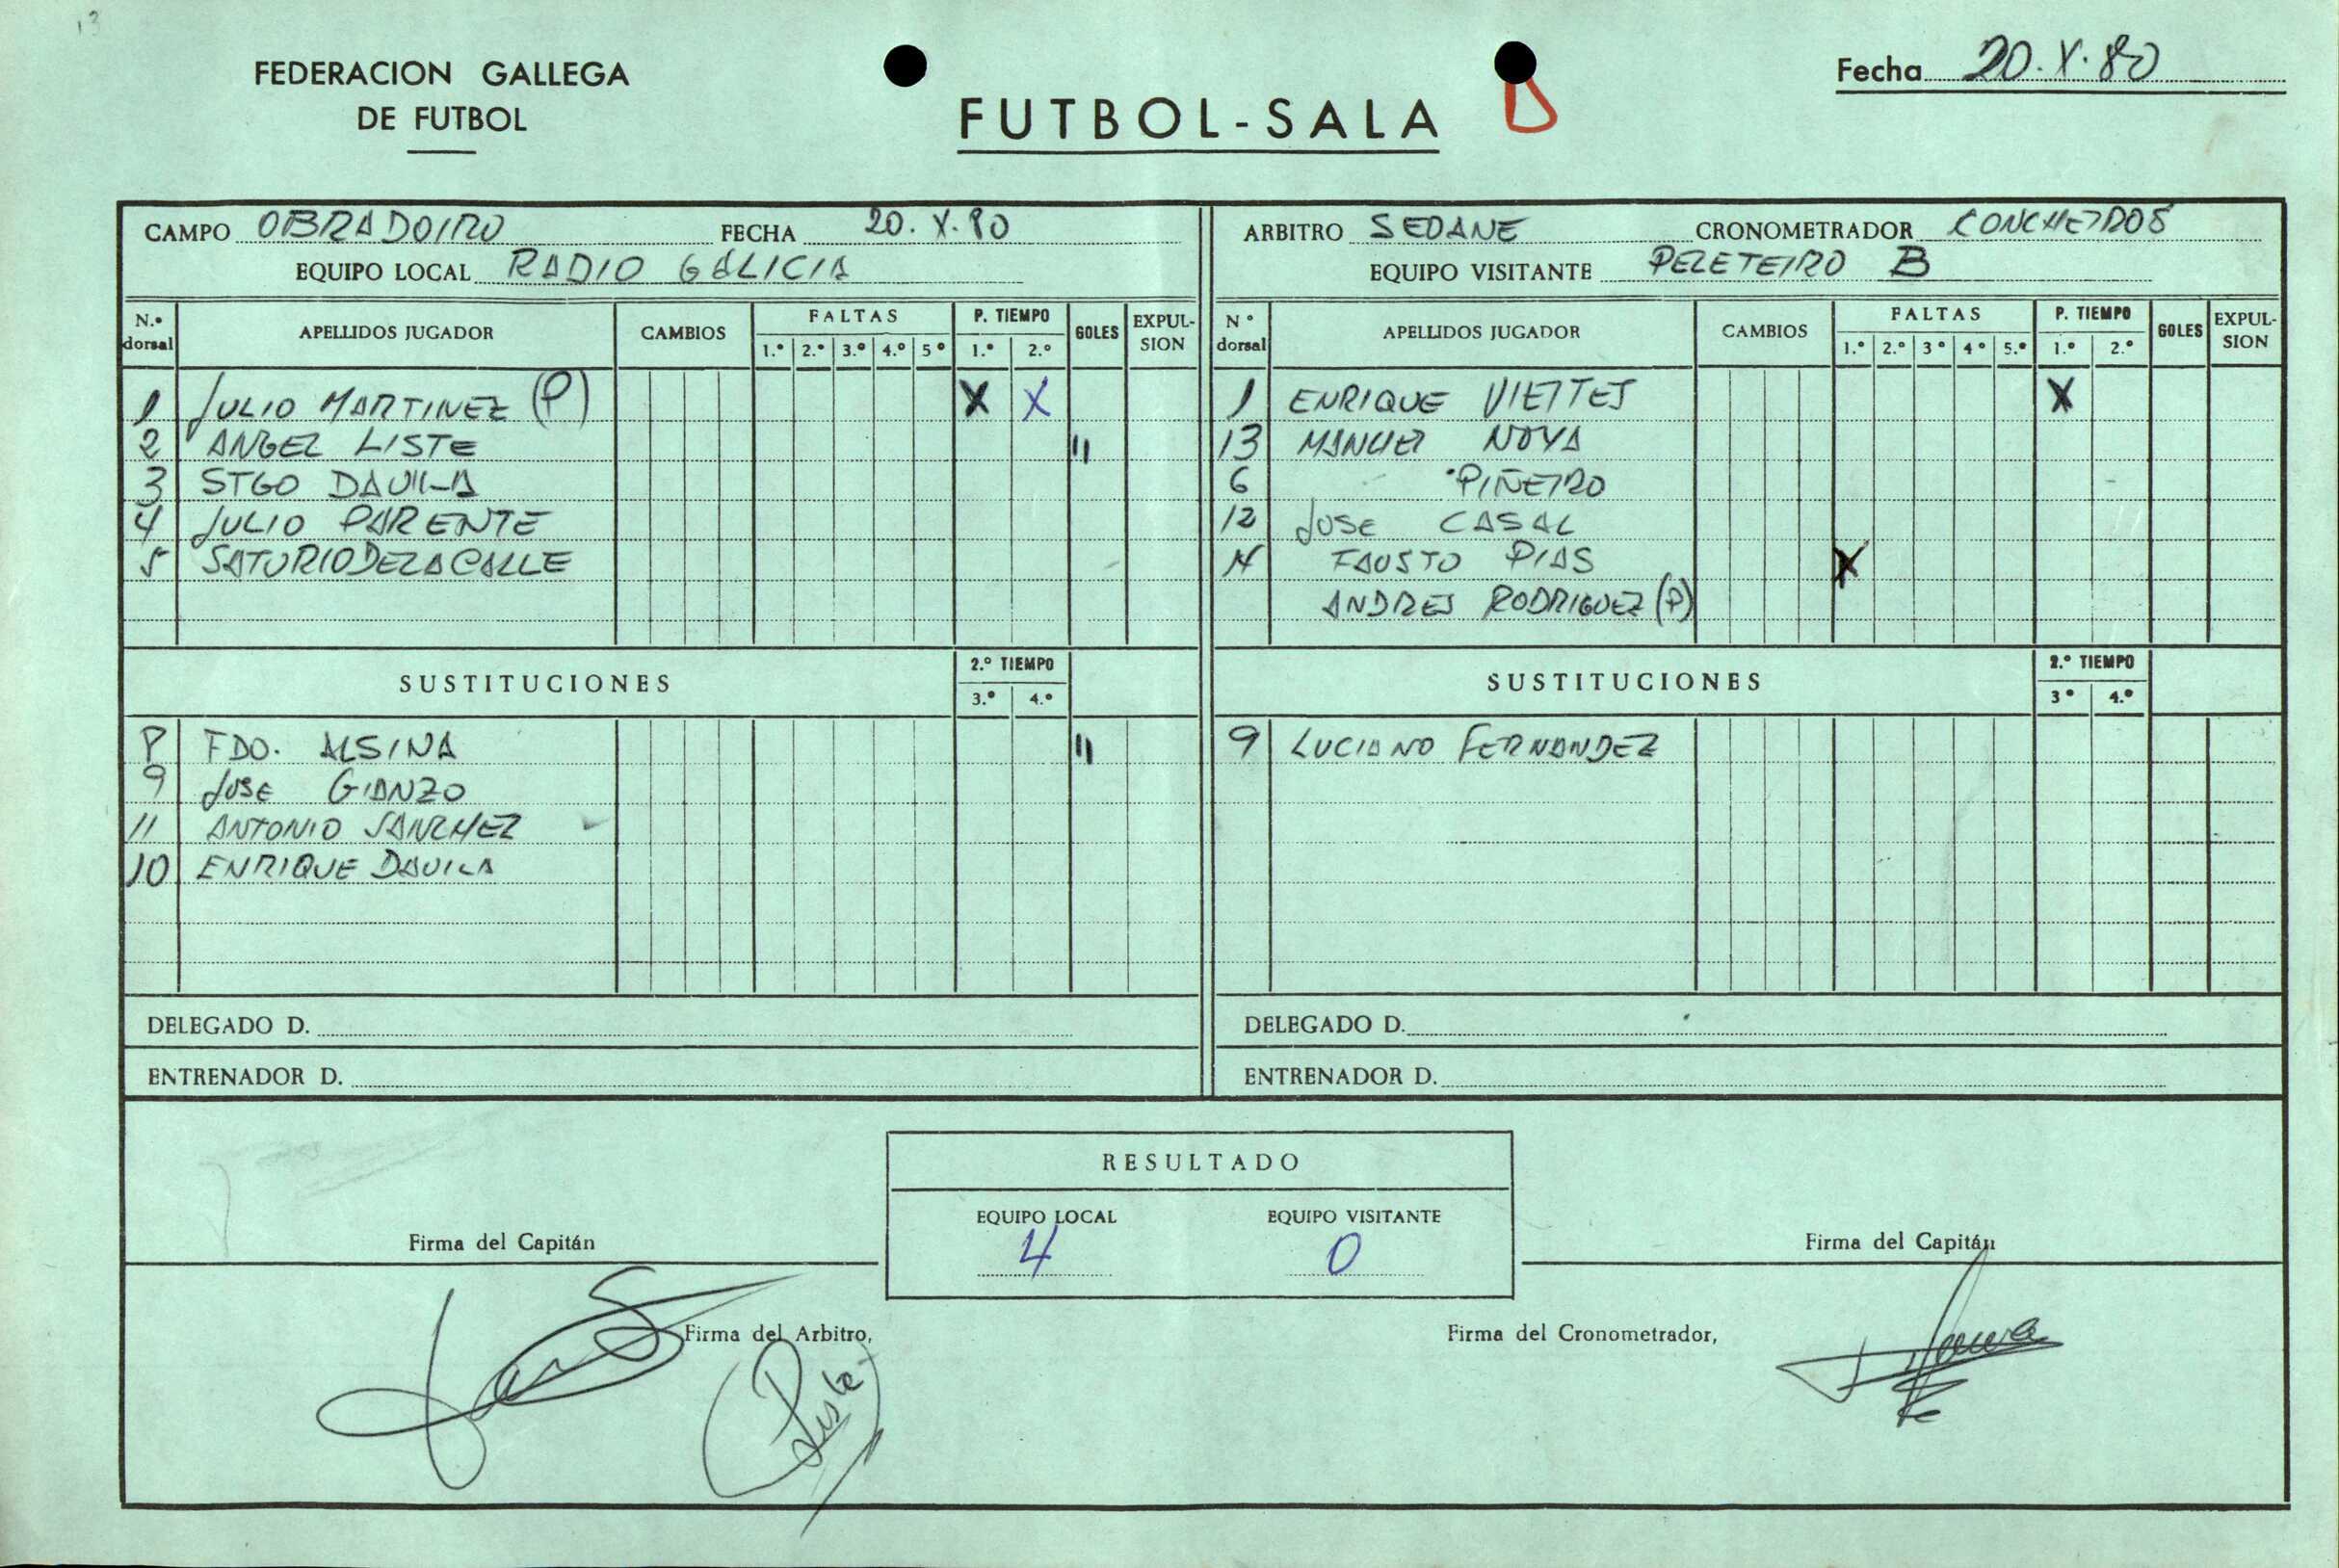 13
FEDERACION GALLEGA
DE FUTBOL
FUTBOL-SALA B
Fecha 20.X.80
CAMPO OBRADOIRO FECHA 20.X.80
EQUIPO LOCAL RADIO GALICIA
N.º dorsal APELLIDOS JUGADOR CAMBIOS FALTAS 1.º 2.º 3.º 4.º 5º P. TIEMPO 1.º 2.º GOLES EXPUL-SION
1 JULIO MARTINEZ (P) X X
2 ANGEL LISTE 11
3 STGO DAVILA
4 JULIO PARENTE
5 SATURIO DE LA CALLE
SUSTITUCIONES 2.º TIEMPO 3.º 4.º
8 FDO. ALSINA 11
9 JOSE GIANZO
11 ANTONIO SANCHEZ
10 ENRIQUE DAVILA
DELEGADO D.
ENTRENADOR D.
ARBITRO SEOANE CRONOMETRADOR CONCHEIROS
EQUIPO VISITANTE PELETEIRO B
Nº dorsal APELLIDOS JUGADOR CAMBIOS FALTAS 1.º 2.º 3º 4º 5.º P. TIEMPO 1.º 2.º GOLES EXPUL-SION
1 ENRIQUE VIEITES X
13 MANUEL NOYA
6 PIÑEIRO
12 JOSE CASAL
FAUSTO PIAS X
ANDRES RODRIGUEZ (P)
SUSTITUCIONES 2.º TIEMPO 3º 4.º
9 LUCIANO FERNANDEZ
DELEGADO D.
ENTRENADOR D.
RESULTADO
EQUIPO LOCAL EQUIPO VISITANTE
4 0
Firma del Capitán
Firma del Capitán
Firma del Arbitro,
Firma del Cronometrador,
Liste